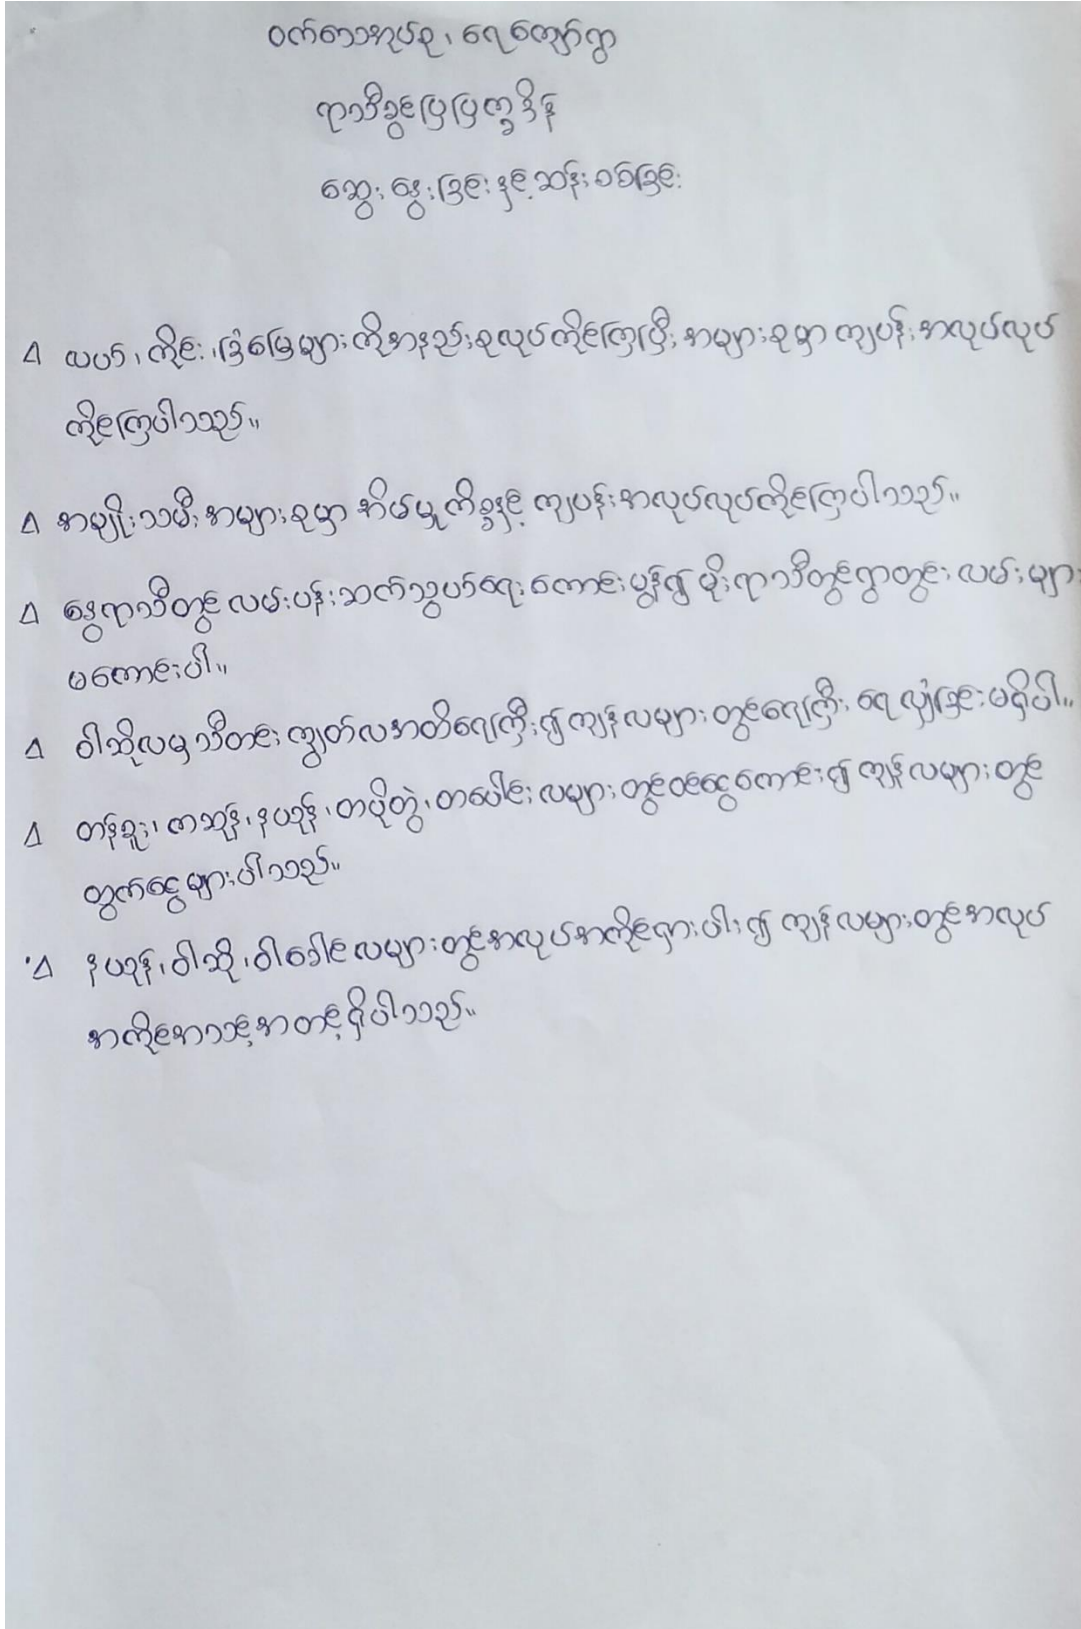 ဝက်တောအုပ်စု၊ ရေကျော်ရွာ
ရာသီခွင်ပြပြက္ခဒိန်
ဆွေးနွေးခြင်းနှင့်ဆန်းစစ်ခြင်း
Δ ယာ၊ ကိုင်း၊ ခြံမြေများကိုအနည်းစုလုပ်ကိုင်ကြပြီး အများစုမှာ ကျပန်းအလုပ်လုပ်
ကိုင်ကြပါသည်။
Δ အမျိုးသမီးအများစုမှာ အိမ်မှုကိစ္စနှင့် ကျပန်းအလုပ်လုပ်ကိုင်ကြပါသည်။
Δ နွေရာသီတွင် လမ်းပန်းဆက်သွယ်ရေးကောင်းမွန်၍ မိုးရာသီတွင်ရွာတွင်းလမ်းများ
မကောင်းပါ။
Δ ဝါဆိုလမှသီတင်းကျွတ်လအထိရေကြီး၍ကျန်လများတွင်ရေကြီး၊ ရေလျှံခြင်းမရှိပါ။
Δ တန်ခူး၊ ကဆုန်၊ နယုန်၊ တပို့တွဲ၊ တပေါင်းလများတွင်ဝင်ငွေကောင်း၍ ကျန်လများတွင်
ထွက်ငွေများပါသည်။
Δ နယုန်၊ ဝါဆို၊ ဝါခေါင်လများတွင်အလုပ်အကိုင်ရှားပါး၍ ကျန်လများတွင်အလုပ်
အကိုင်အသင့်အတင့်ရှိပါသည်။